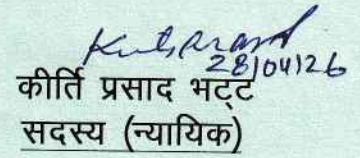 28/04/26
कीर्ति प्रसाद भट्ट
सदस्य (न्यायिक)